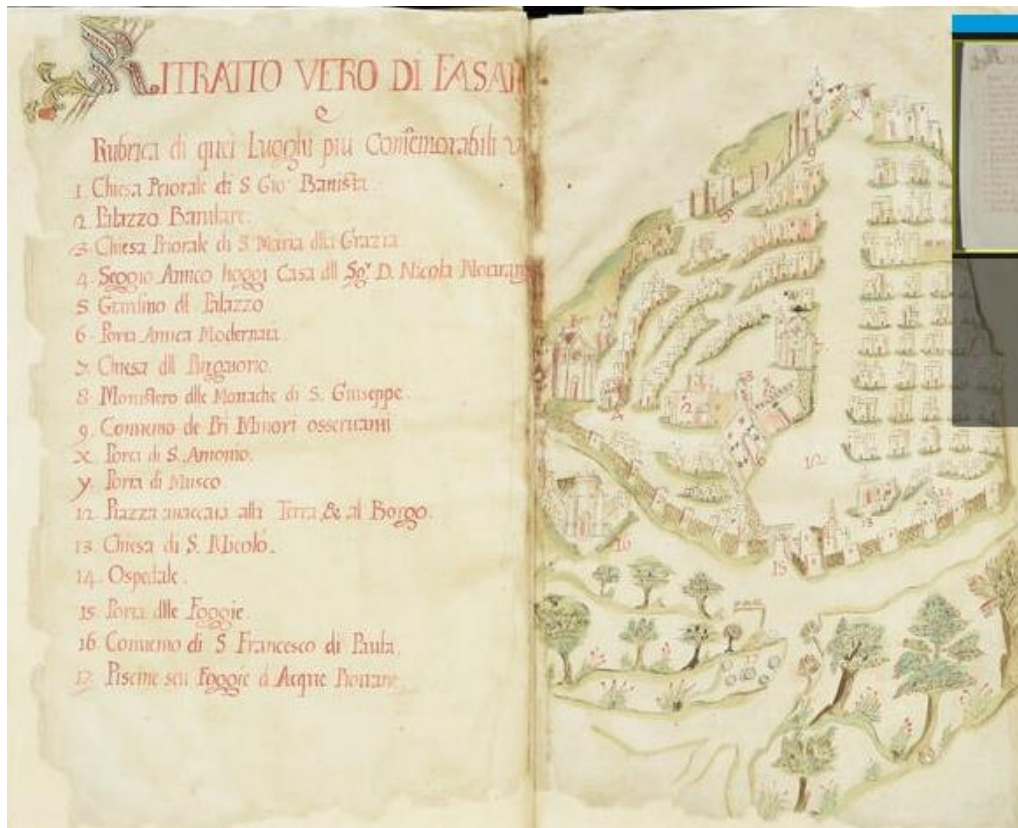 RITRATTO VERO DI FASAN
e
Rubrica di quei Luoghi piu Comẽmorabili
1. Chiesa Priorale di S. Gio: Battista.
2. Palazzo Baronale.
3. Chiesa Priorale di S. Maria dlla Grazia
4. Seggio Antico hoggi Casa dll Sgr. D. Nicola
5. Giardino dl Palazzo
6. Porta Antica Modernata.
7. Chiesa dll Purgatorio.
8. Monistero dlle Monache di S. Giuseppe.
9. Convento de Pri Minori osservanti
X. Porta di S. Antonio.
y. Porta di Musco
12. Piazza attaccata alla Terra, & al Borgo.
13. Chiesa di S. Nicolo.
14. Ospedale.
15. Porta dlle Foggie.
16. Convento di S. Francesco di Paula.
17. Piscine seu Foggie d Acque Piovane.
X
9
5
7
4
2
3
1
6
12
14
13
16
15
17